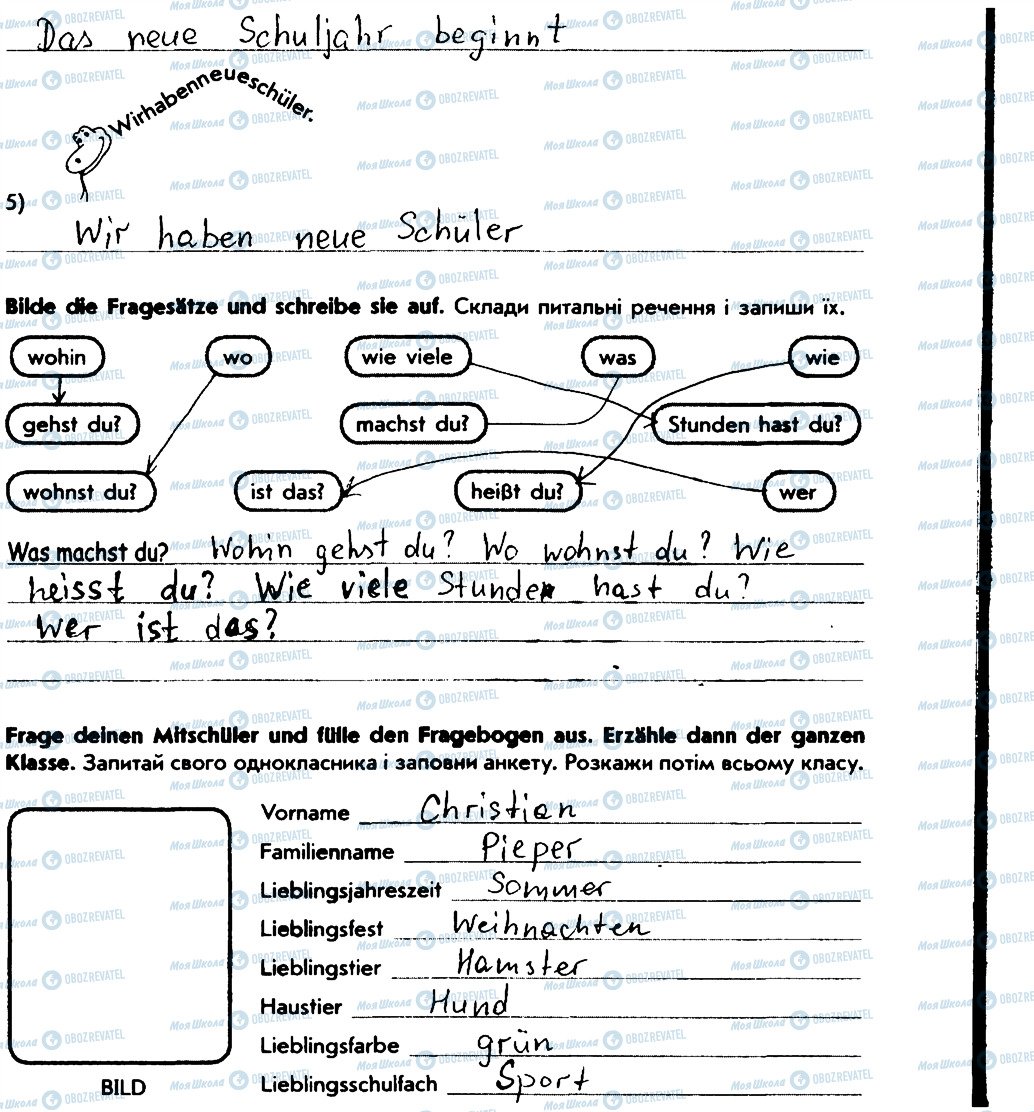 Das neue Schuljahr beginnt
Wirhabenneueschüler.
5)
Wir haben neue Schüler
Bilde die Fragesätze und schreibe sie auf. Склади питальні речення і запиши їх.
wohin wo wie viele was wie
gehst du? machst du? Stunden hast du?
wohnst du? ist das? heißt du? wer
Was machst du? Wohin gehst du? Wo wohnst du? Wie
heisst du? Wie viele Stunden hast du?
Wer ist das?
Frage deinen Mitschüler und fülle den Fragebogen aus. Erzähle dann der ganzen
Klasse. Запитай свого однокласника і заповни анкету. Розкажи потім всьому класу.
Vorname Christian
Familienname Pieper
Lieblingsjahreszeit Sommer
Lieblingsfest Weihnachten
Lieblingstier Hamster
Haustier Hund
Lieblingsfarbe grün
BILD
Lieblingsschulfach Sport
Моя Школа OBOZREVATEL